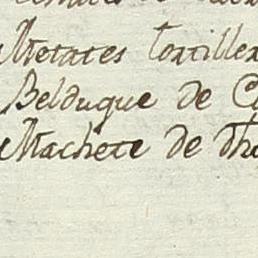 Metates tortille
Belduque de C
Machete de